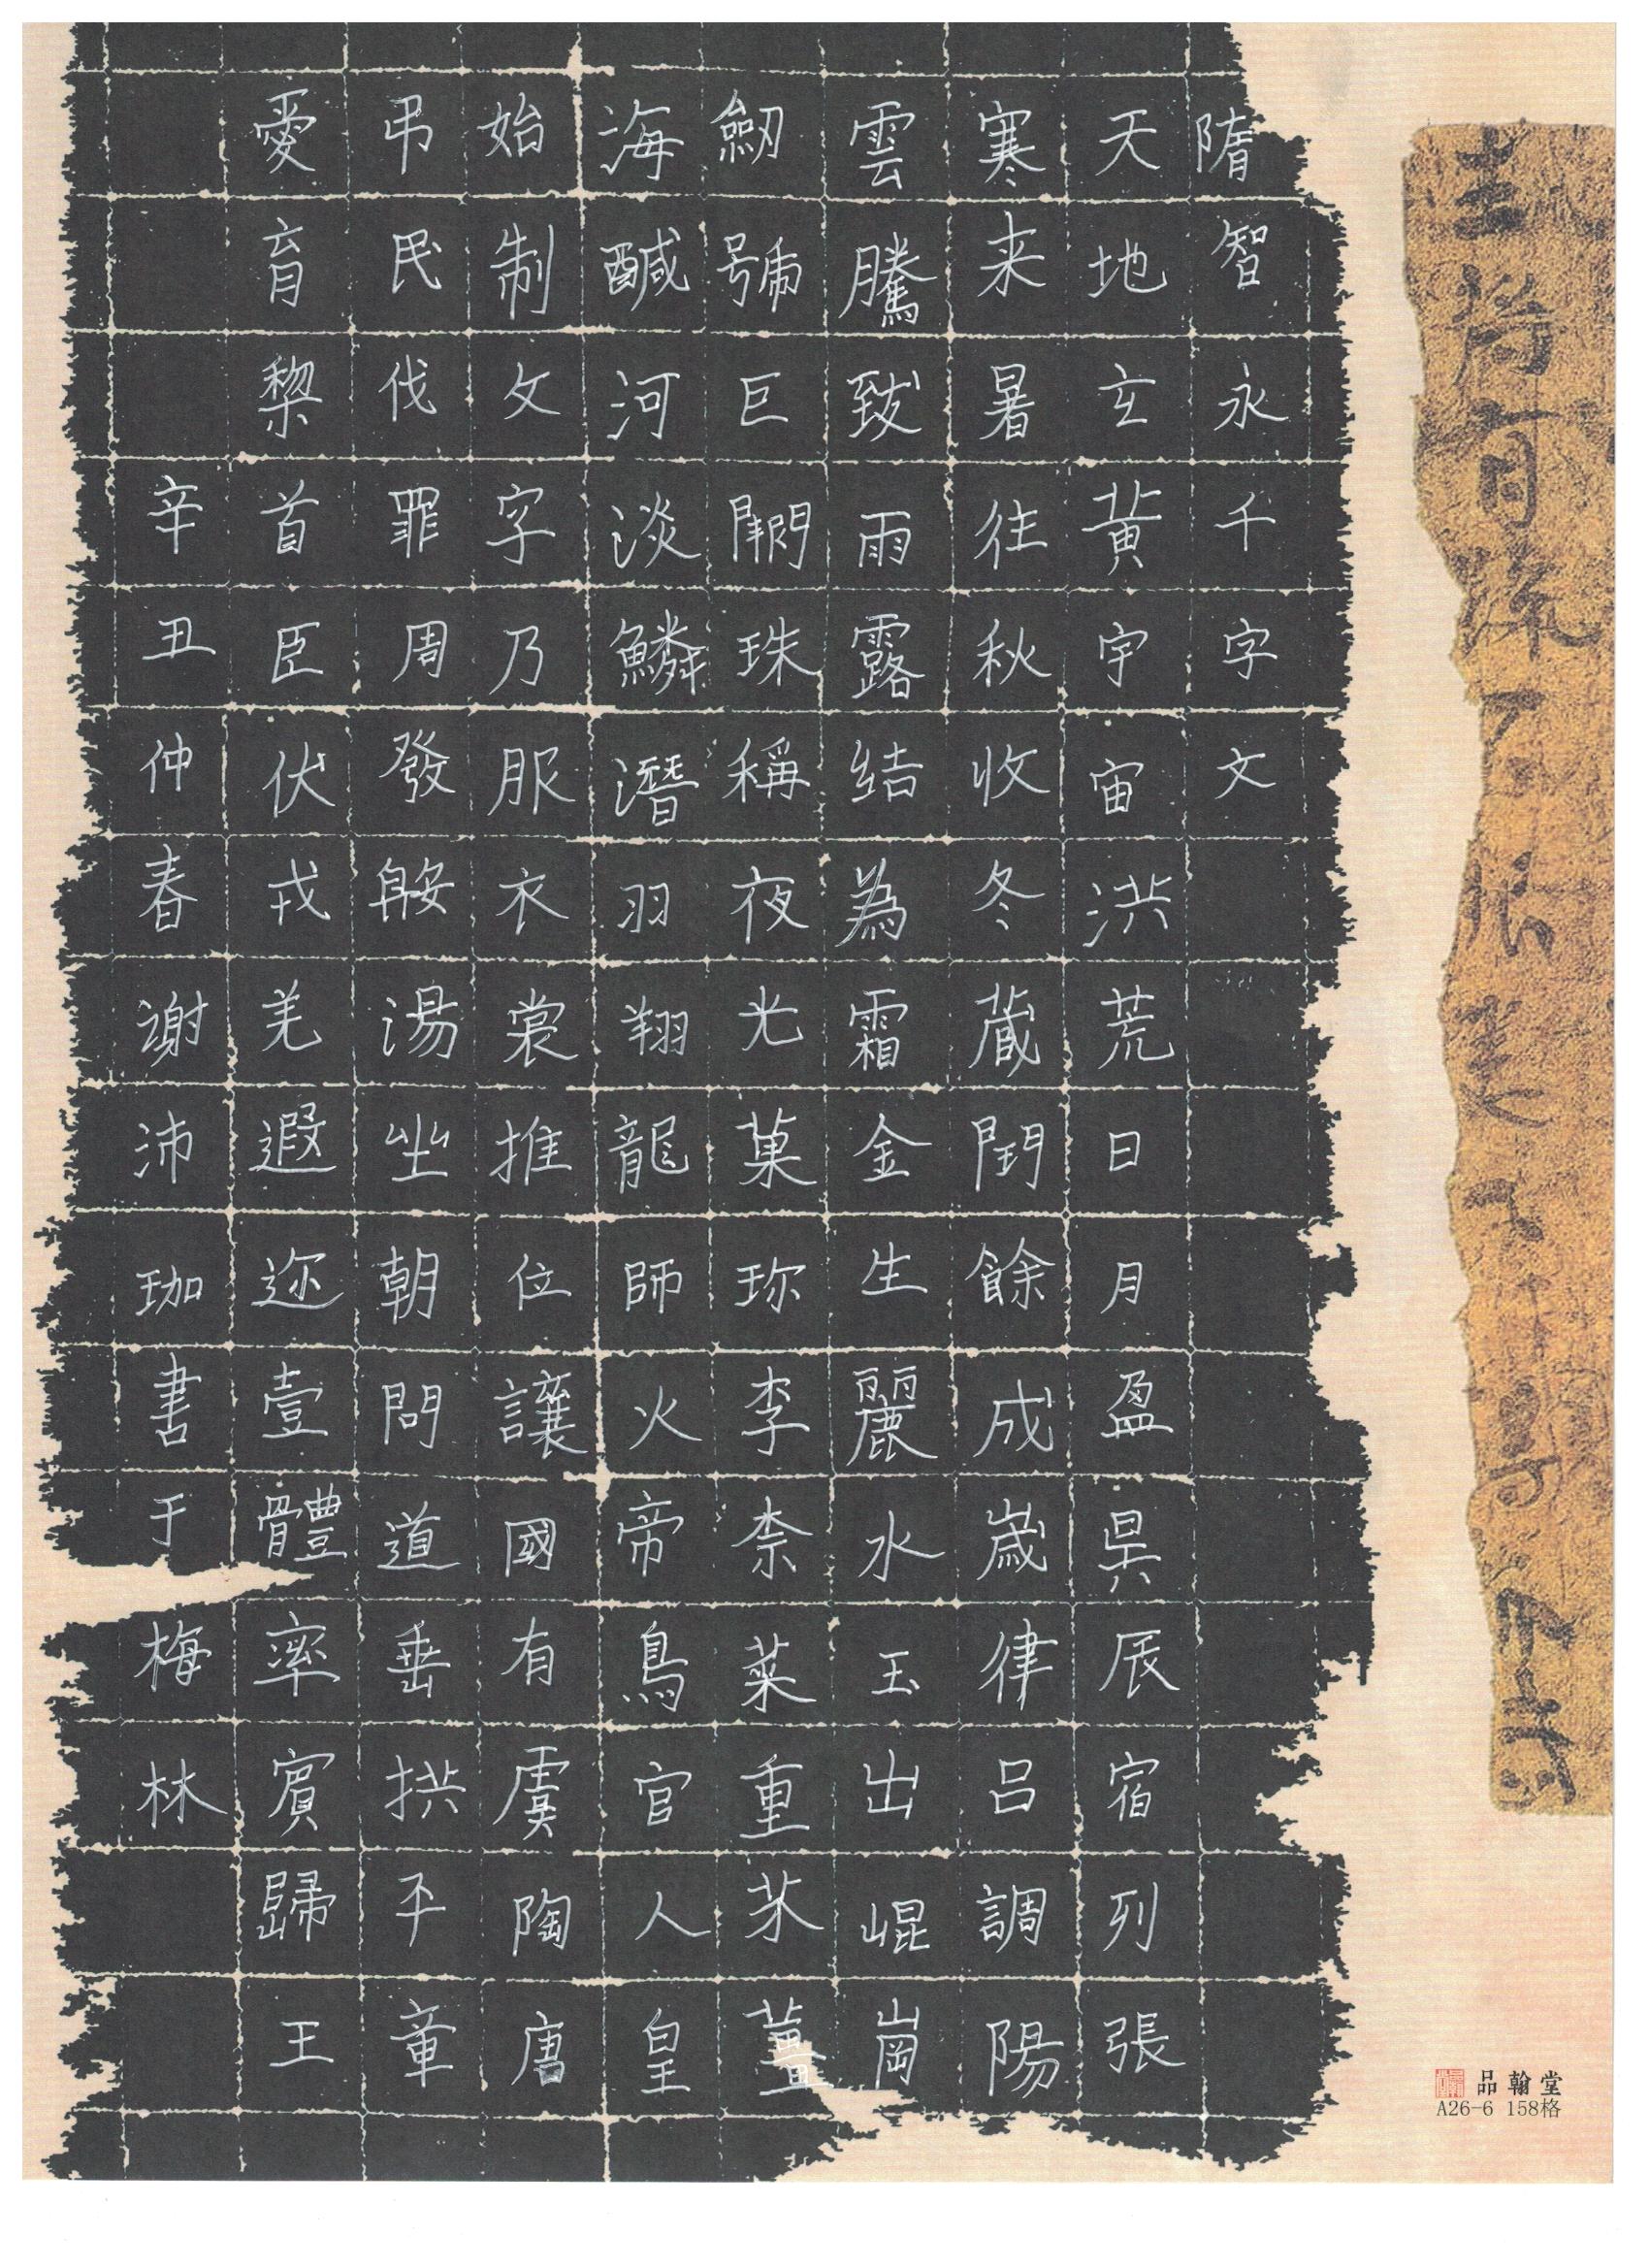 隋智永千字文
天地玄黃宇宙洪荒日月盈昃辰宿列張
寒来暑往秋收冬蔵閏餘成歲律呂調陽
雲騰致雨露結為霜金生麗水玉出崐崗
劒號巨闕珠稱夜光菓珎李柰菜重芥薑
海醎河淡鱗潛羽翔龍師火帝鳥官人皇
始制文字乃服衣裳推位讓國有虞陶唐
弔民伐罪周發殷湯坐朝問道垂拱平章
愛育黎首臣伏戎羌遐迩壹體率賓歸王
辛丑仲春謝沛珈書于梅林
品翰堂
A26-6 158格